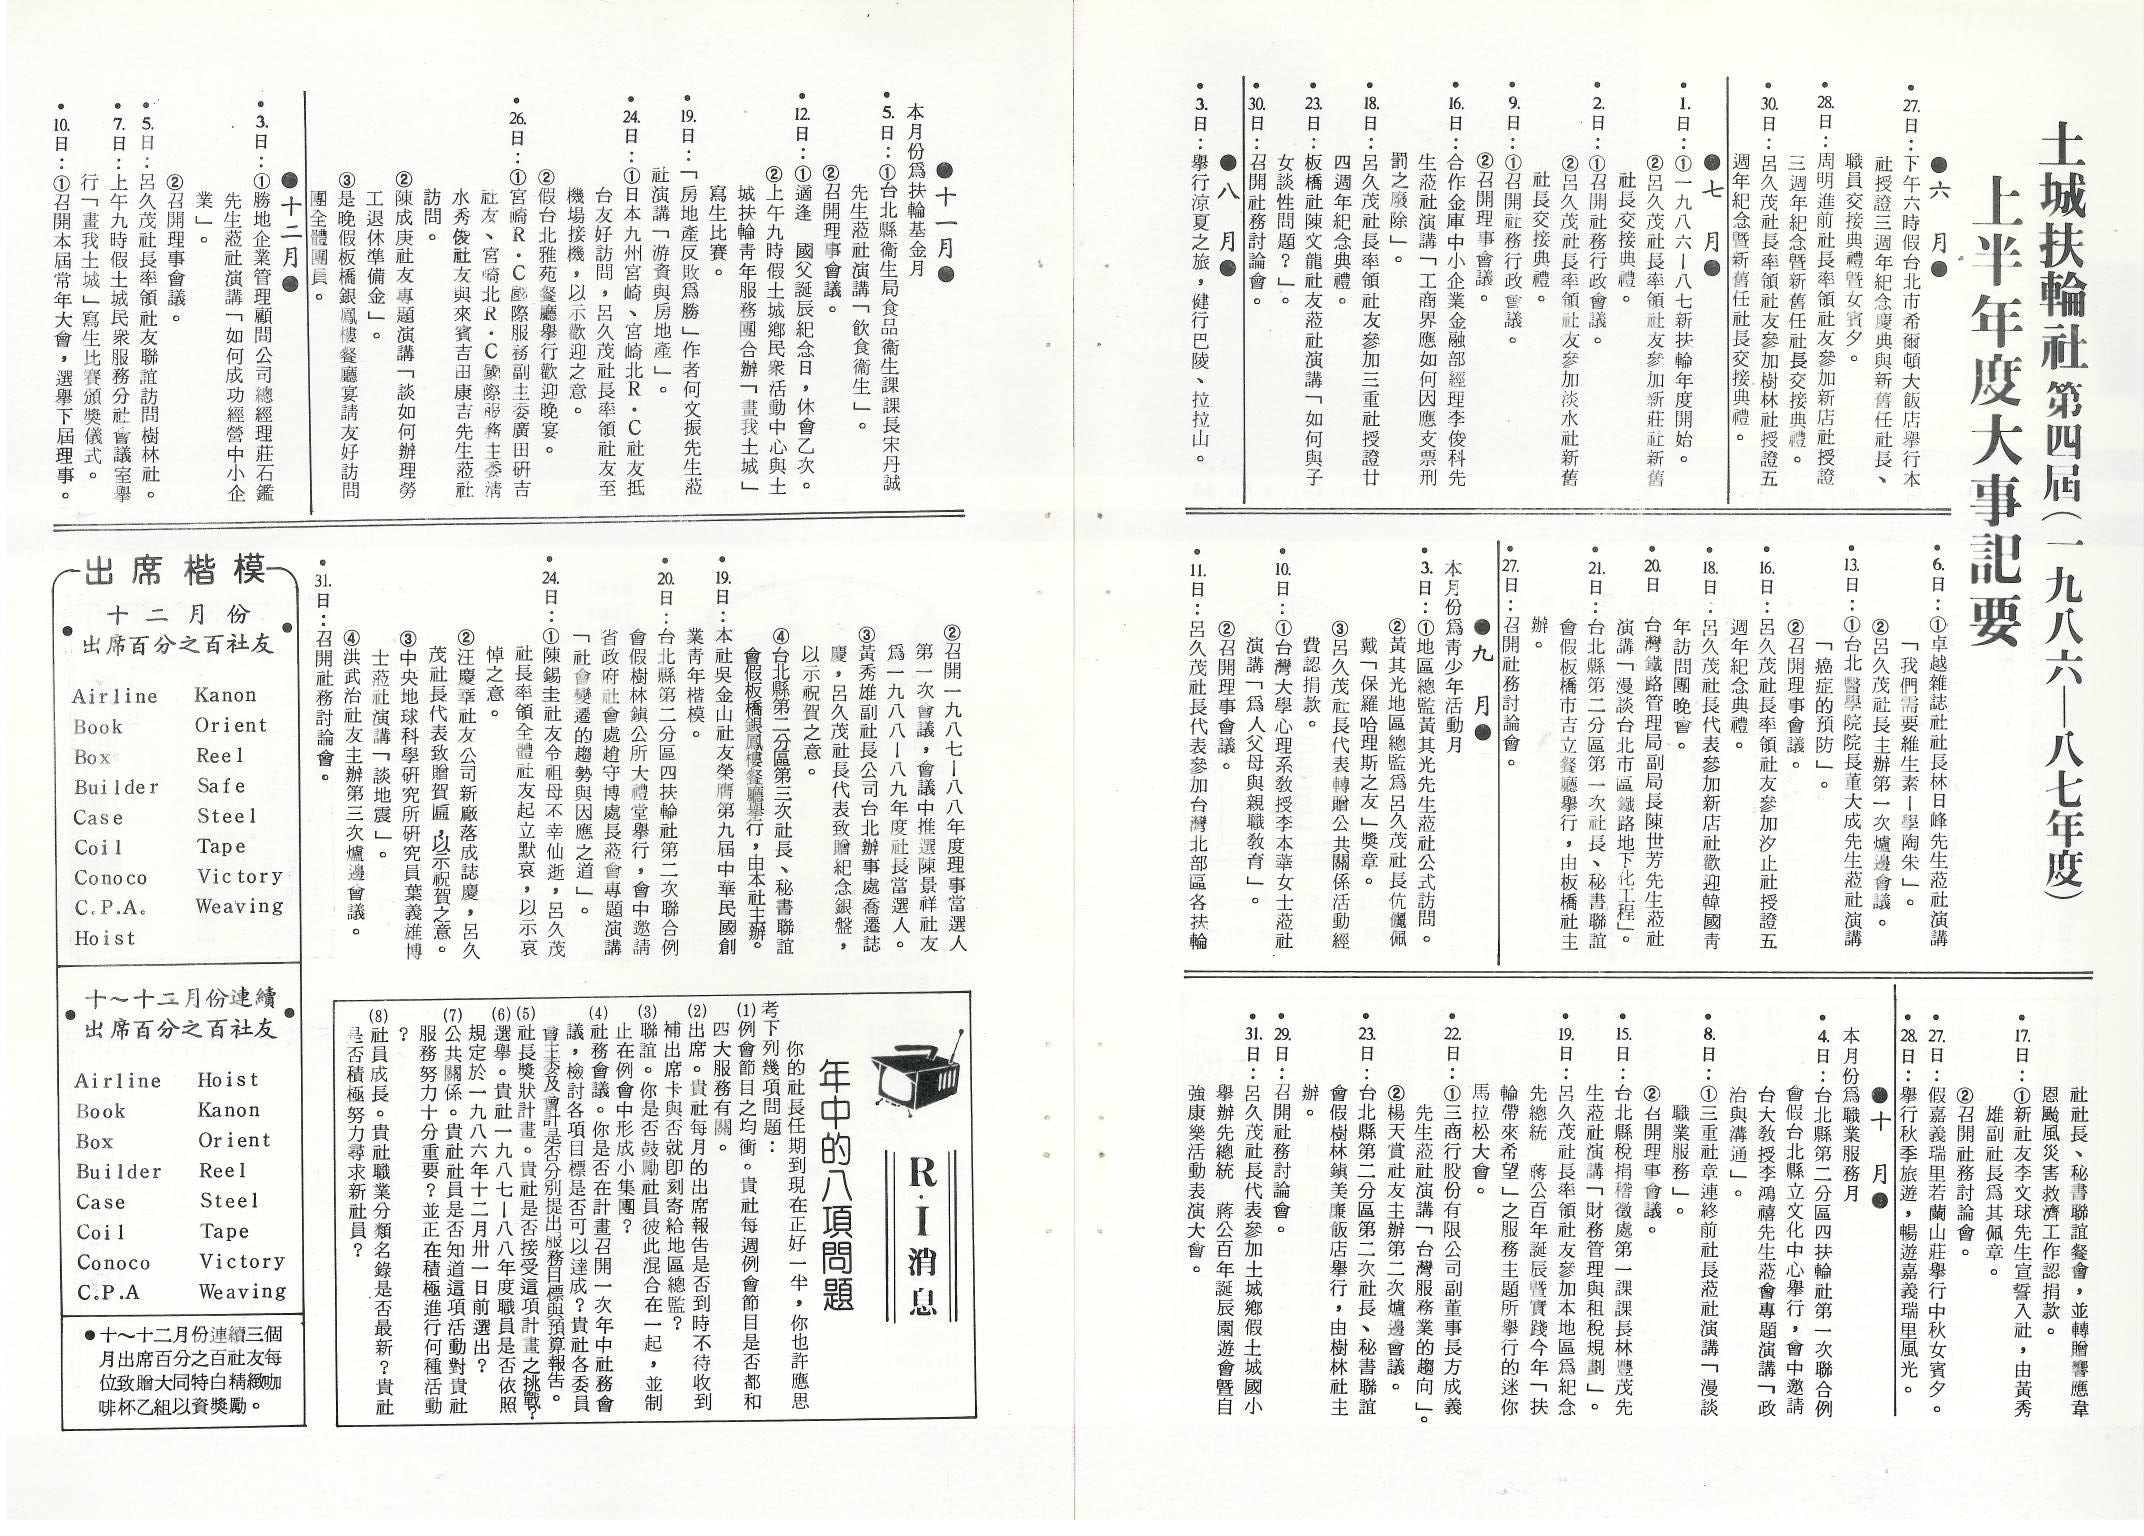 土城扶輪社第四屆(一九八六—八七年度)
上半年度大事記要
●六　月●
•27.日：下午六時假台北市希爾頓大飯店舉行本
社授證三週年紀念慶典與新舊任社長、
職員交接典禮暨女賓夕。
•28.日：周明進前社長率領社友參加新店社授證
三週年紀念暨新舊任社長交接典禮。
•30.日：呂久茂社長率領社友參加樹林社授證五
週年紀念暨新舊任社長交接典禮。
●七　月●
•1.日：①一九八六—八七新扶輪年度開始。
②呂久茂社長率領社友參加新莊社新舊
社長交接典禮。
•2.日：①召開社務行政會議。
②呂久茂社長率領社友參加淡水社新舊
社長交接典禮。
•9.日：①召開社務行政會議。
②召開理事會議。
•16.日：合作金庫中小企業金融部經理李俊科先
生蒞社演講「工商界應如何因應支票刑
罰之廢除」。
•18.日：呂久茂社長率領社友參加三重社授證廿
四週年紀念典禮。
•23.日：板橋社陳文龍社友蒞社演講「如何與子
女談性問題？」。
•30.日：召開社務討論會。
●八　月●
•3.日：舉行涼夏之旅，健行巴陵、拉拉山。
•6.日：①卓越雜誌社社長林日峰先生蒞社演講
「我們需要維生素—學陶朱」。
②呂久茂社長主辦第一次爐邊會議。
•13.日：①台北醫學院院長董大成先生蒞社演講
「癌症的預防」。
②召開理事會議。
•16.日：呂久茂社長率領社友參加汐止社授證五
週年紀念典禮。
•18.日：呂久茂社長代表參加新店社歡迎韓國靑
年訪問團晚會。
•20.日　台灣鐵路管理局副局長陳世芳先生蒞社
演講「漫談台北市區鐵路地下化工程」。
•21.日：台北縣第二分區第一次社長、秘書聯誼
會假板橋市吉立餐廳舉行，由板橋社主
辦。
•27.日：召開社務討論會。
●九　月●
本月份爲靑少年活動月
•3.日：①地區總監黃其光先生蒞社公式訪問。
②黃其光地區總監爲呂久茂社長伉儷佩
戴「保羅哈理斯之友」獎章。
③呂久茂社長代表轉贈公共關係活動經
費認捐款。
•10.日：①台灣大學心理系敎授李本華女士蒞社
演講「爲人父母與親職敎育」。
②召開理事會議。
•11.日：呂久茂社長代表參加台灣北部區各扶輪
社社長、秘書聯誼餐會，並轉贈響應韋
恩颱風災害救濟工作認捐款。
•17.日：①新社友李文球先生宣誓入社，由黃秀
雄副社長爲其佩章。
②召開社務討論會。
•27.日：假嘉義瑞里若蘭山莊舉行中秋女賓夕。
•28.日：舉行秋季旅遊，暢遊嘉義瑞里風光。
●十　月●
本月份爲職業服務月
•4.日：台北縣第二分區四扶輪社第一次聯合例
會假台北縣立文化中心舉行，會中邀請
台大敎授李鴻禧先生蒞會專題演講「政
治與溝通」。
•8.日：①三重社章連終前社長蒞社演講「漫談
職業服務」。
②召開理事會議。
•15.日：台北縣稅捐稽徵處第一課課長林豐茂先
生蒞社演講「財務管理與租稅規劃」。
•19.日：呂久茂社長率領社友參加本地區爲紀念
先總統　蔣公百年誕辰暨實踐今年「扶
輪帶來希望」之服務主題所舉行的迷你
馬拉松大會。
•22.日：①三商行股份有限公司副董事長方成義
先生蒞社演講「台灣服務業的趨向」。
②楊天賞社友主辦第二次爐邊會議。
•23.日：台北縣第二分區第二次社長、秘書聯誼
會假樹林鎭美廉飯店舉行，由樹林社主
辦。
•29.日：召開社務討論會。
•31.日：呂久茂社長代表參加土城鄉假土城國小
舉辦先總統　蔣公百年誕辰園遊會暨自
強康樂活動表演大會。
●十一月●
本月份爲扶輪基金月
•5.日：①台北縣衞生局食品衞生課課長宋丹誠
先生蒞社演講「飲食衞生」。
②召開理事會議。
•12.日：①適逢　國父誕辰紀念日，休會乙次。
②上午九時假土城鄉民衆活動中心與土
城扶輪靑年服務團合辦「畫我土城」
寫生比賽。
•19.日：「房地產反敗爲勝」作者何文振先生蒞
社演講「游資與房地產」。
•24.日：①日本九州宮崎、宮崎北R・C社友抵
台友好訪問，呂久茂社長率領社友至
機場接機，以示歡迎之意。
②假台北雅苑餐廳舉行歡迎晚宴。
•26.日：①宮崎R・C國際服務副主委廣田硏吉
社友、宮崎北R・C國際服務主委淸
水秀俊社友與來賓吉田康吉先生蒞社
訪問。
②陳成庚社友專題演講「談如何辦理勞
工退休準備金」。
③是晚假板橋銀鳳樓餐廳宴請友好訪問
團全體團員。
●十二月●
•3.日：①勝地企業管理顧問公司總經理莊石鑑
先生蒞社演講「如何成功經營中小企
業」。
②召開理事會議。
•5.日：呂久茂社長率領社友聯誼訪問樹林社。
•7.日：上午九時假土城民衆服務分社會議室舉
行「畫我土城」寫生比賽頒獎儀式。
•10.日：①召開本屆常年大會，選舉下屆理事。
②召開一九八七—八八年度理事當選人
第一次會議，會議中推選陳景祥社友
爲一九八八—八九年度社長當選人。
③黃秀雄副社長公司台北辦事處喬遷誌
慶，呂久茂社長代表致贈紀念銀盤，
以示祝賀之意。
④台北縣第二分區第三次社長、秘書聯誼
會假板橋銀鳳樓餐廳舉行，由本社主辦。
•19.日：本社吳金山社友榮膺第九屆中華民國創
業靑年楷模。
•20.日：台北縣第二分區四扶輪社第二次聯合例
會假樹林鎭公所大禮堂舉行，會中邀請
省政府社會處趙守博處長蒞會專題演講
「社會變遷的趨勢與因應之道」。
•24.日：①陳錫圭社友令祖母不幸仙逝，呂久茂
社長率領全體社友起立默哀，以示哀
悼之意。
②汪慶華社友公司新廠落成誌慶，呂久
茂社長代表致贈賀匾，以示祝賀之意。
③中央地球科學硏究所硏究員葉義雄博
士蒞社演講「談地震」。
④洪武治社友主辦第三次爐邊會議。
•31.日：召開社務討論會。
R・I消息
年中的八項問題
你的社長任期到現在正好一半，你也許應思
考下列幾項問題：
(1)例會節目之均衡。貴社每週例會節目是否都和
四大服務有關。
(2)出席。貴社每月的出席報告是否到時不待收到
補出席卡與否就卽刻寄給地區總監？
(3)聯誼。你是否鼓勵社員彼此混合在一起，並制
止在例會中形成小集團？
(4)社務會議。你是否在計畫召開一次年中社務會
議，檢討各項目標是否可以達成？貴社各委員
會主委及會計是否分別提出服務目標與預算報告。
(5)社長獎狀計畫。貴社是否接受這項計畫之挑戰？
(6)選舉。貴社一九八七—八八年度職員是否依照
規定於一九八六年十二月卅一日前選出？
(7)公共關係。貴社社員是否知道這項活動對貴社
服務努力十分重要？並正在積極進行何種活動
？
(8)社員成長。貴社職業分類名錄是否最新？貴社
是否積極努力尋求新社員？
出席楷模
十二月份
出席百分之百社友
Airline　Kanon
Book　Orient
Box　Reel
Builder　Safe
Case　Steel
Coil　Tape
Conoco　Victory
C.P.A.　Weaving
Hoist
十～十二月份連續
出席百分之百社友
Airline　Hoist
Book　Kanon
Box　Orient
Builder　Reel
Case　Steel
Coil　Tape
Conoco　Victory
C.P.A　Weaving
●十～十二月份連續三個
月出席百分之百社友每
位致贈大同特白精緻咖
啡杯乙組以資獎勵。